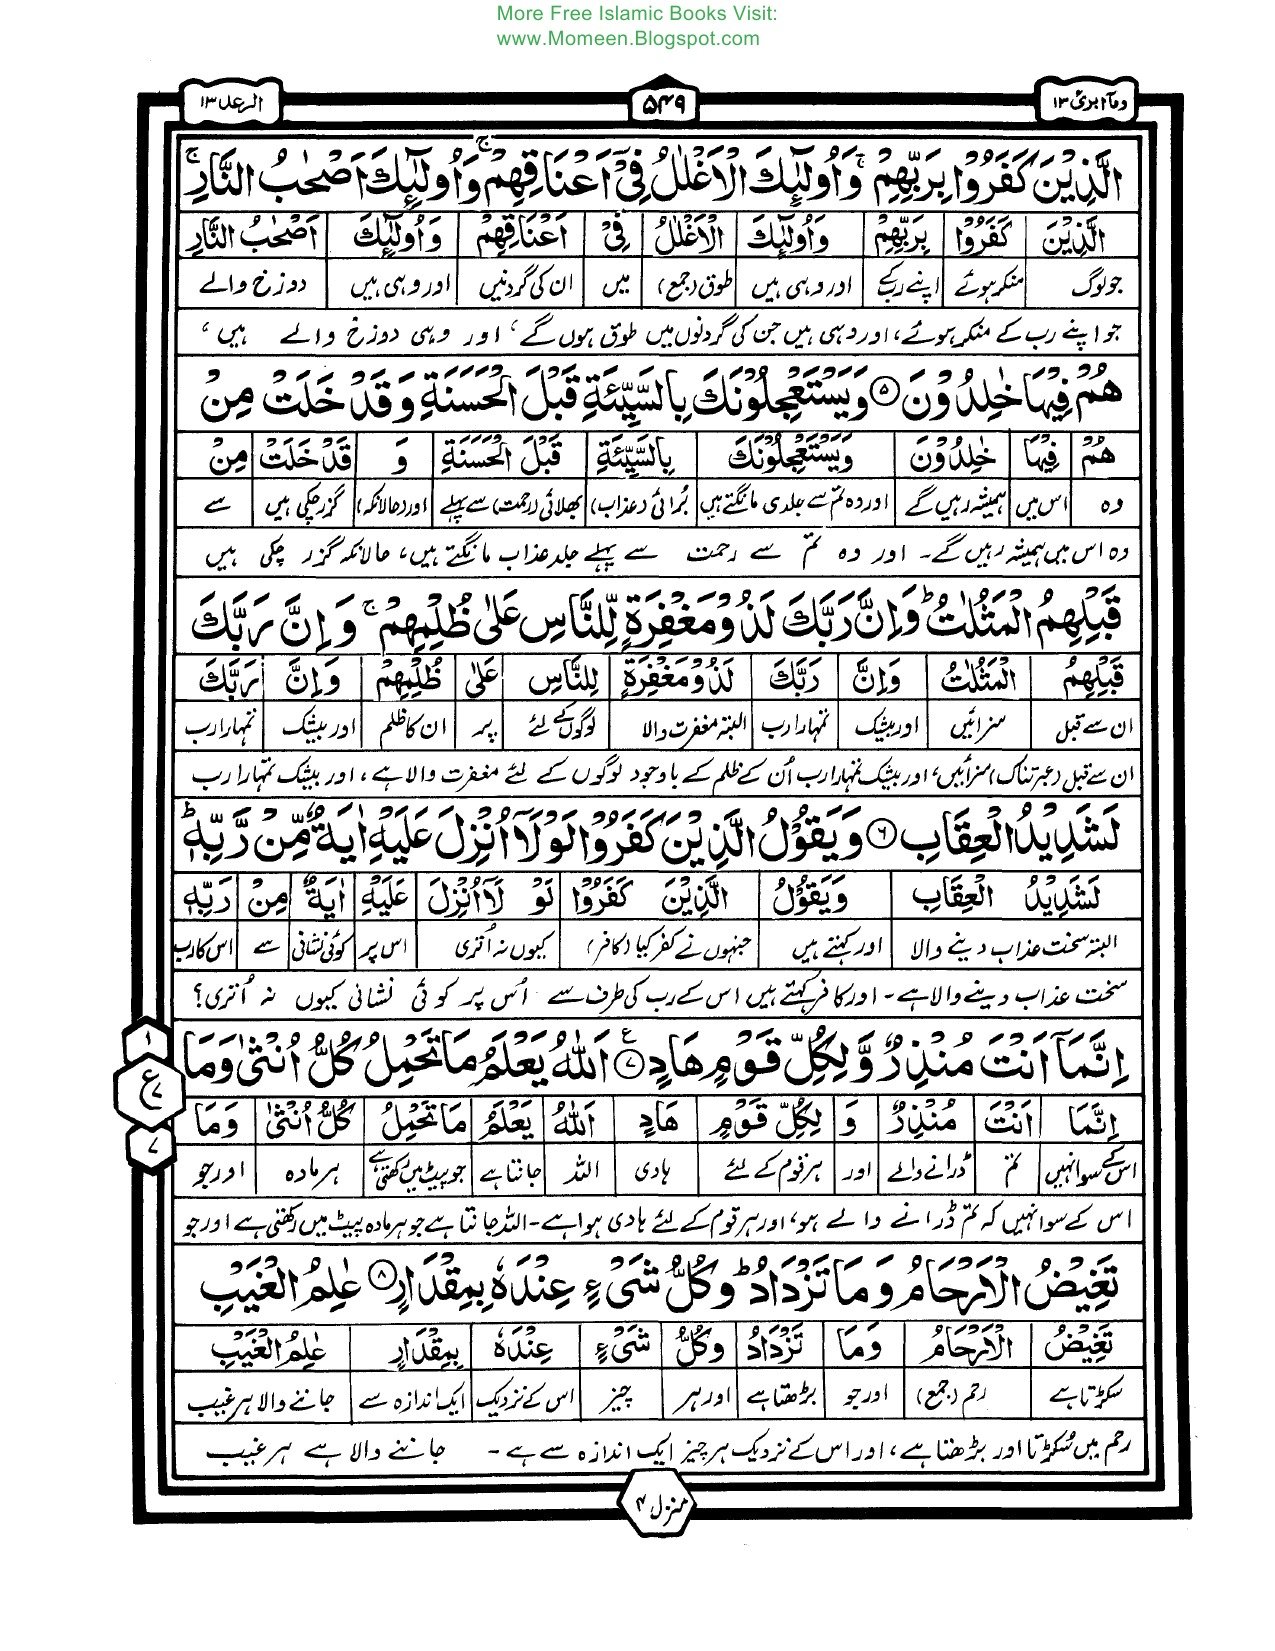 More Free Islamic Books Visit:
www.Momeen.Blogspot.com
وما ابرئ ۱۳
۵۴۹
الرعد ۱۳
الَّذِيْنَ كَفَرُوْا بِرَبِّهِمْ ۚ وَاُولٰٓئِكَ الْاَغْلٰلُ فِيْٓ اَعْنَاقِهِمْ ۚ وَاُولٰٓئِكَ اَصْحٰبُ النَّارِ ۚ
الَّذِيْنَ كَفَرُوْا بِرَبِّهِمْ وَاُولٰٓئِكَ الْاَغْلٰلُ فِيْٓ اَعْنَاقِهِمْ وَاُولٰٓئِكَ اَصْحٰبُ النَّارِ
جو لوگ منکر ہوئے اپنے رب کے اور وہی ہیں طوق (جمع) میں ان کی گردنیں اور وہی ہیں دوزخ والے
جو اپنے رب کے منکر ہوئے، اور وہی ہیں جن کی گردنوں میں طوق ہوں گے، اور وہی دوزخ والے ہیں،
هُمْ فِيْهَا خٰلِدُوْنَ ۵ وَيَسْتَعْجِلُوْنَكَ بِالسَّيِّئَةِ قَبْلَ الْحَسَنَةِ وَقَدْ خَلَتْ مِنْ
هُمْ فِيْهَا خٰلِدُوْنَ وَيَسْتَعْجِلُوْنَكَ بِالسَّيِّئَةِ قَبْلَ الْحَسَنَةِ وَ قَدْ خَلَتْ مِنْ
وہ اس میں ہمیشہ رہیں گے اور وہ تم سے جلدی مانگتے ہیں بُرائی (عذاب) بھلائی (رحمت) سے پہلے اور (حالانکہ) گزر چکی ہیں سے
وہ اس میں ہمیشہ رہیں گے۔ اور وہ تم سے رحمت سے پہلے جلد عذاب مانگتے ہیں، حالانکہ گزر چکی ہیں
قَبْلِهِمُ الْمَثُلٰتُ ؕ وَاِنَّ رَبَّكَ لَذُوْ مَغْفِرَةٍ لِّلنَّاسِ عَلٰى ظُلْمِهِمْ ۚ وَاِنَّ رَبَّكَ
قَبْلِهِمُ الْمَثُلٰتُ وَاِنَّ رَبَّكَ لَذُوْ مَغْفِرَةٍ لِلنَّاسِ عَلٰى ظُلْمِهِمْ وَاِنَّ رَبَّكَ
ان سے قبل سزائیں اور بیشک تمہارا رب البتہ مغفرت والا لوگوں کے لئے پر ان کا ظلم اور بیشک تمہارا رب
ان سے قبل (عبرتناک) سزائیں، اور بیشک تمہارا رب اُن کے ظلم کے باوجود لوگوں کے لئے مغفرت والا ہے، اور بیشک تمہارا رب
لَشَدِيْدُ الْعِقَابِ ۶ وَيَقُوْلُ الَّذِيْنَ كَفَرُوْا لَوْلَآ اُنْزِلَ عَلَيْهِ اٰيَةٌ مِّنْ رَّبِّهٖ ؕ
لَشَدِيْدُ الْعِقَابِ وَيَقُوْلُ الَّذِيْنَ كَفَرُوْا لَوْ لَآ اُنْزِلَ عَلَيْهِ اٰيَةٌ مِنْ رَبِّهٖ
البتہ سخت عذاب دینے والا اور کہتے ہیں جنہوں نے کفر کیا (کافر) کیوں نہ اُتری اس پر کوئی نشانی سے اس کا رب
سخت عذاب دینے والا ہے۔ اور کافر کہتے ہیں اس کے رب کی طرف سے اُس پر کوئی نشانی کیوں نہ اُتری؟
اِنَّمَآ اَنْتَ مُنْذِرٌ وَّلِكُلِّ قَوْمٍ هَادٍ ۷ ع اَللّٰهُ يَعْلَمُ مَا تَحْمِلُ كُلُّ اُنْثٰى وَمَا
۱
ع
۷
۷
اِنَّمَآ اَنْتَ مُنْذِرٌ وَ لِكُلِّ قَوْمٍ هَادٍ اَللّٰهُ يَعْلَمُ مَا تَحْمِلُ كُلُّ اُنْثٰى وَمَا
اس کے سوا نہیں تم ڈرانے والے اور ہر قوم کے لئے ہادی اللہ جانتا ہے جو پیٹ میں رکھتی ہے ہر مادہ اور جو
اس کے سوا نہیں کہ تم ڈرانے والے ہو، اور ہر قوم کے لئے ہادی ہوا ہے۔ اللہ جانتا ہے جو ہر مادہ پیٹ میں رکھتی ہے اور جو
تَغِيْضُ الْاَرْحَامُ وَمَا تَزْدَادُ ؕ وَكُلُّ شَيْءٍ عِنْدَهٗ بِمِقْدَارٍ ۸ عٰلِمُ الْغَيْبِ
تَغِيْضُ الْاَرْحَامُ وَمَا تَزْدَادُ وَكُلُّ شَيْءٍ عِنْدَهٗ بِمِقْدَارٍ عٰلِمُ الْغَيْبِ
سکڑتا ہے رحم (جمع) اور جو بڑھتا ہے اور ہر چیز اس کے نزدیک ایک اندازہ سے جاننے والا ہر غیب
رحم میں سُکڑتا اور بڑھتا ہے، اور اس کے نزدیک ہر چیز ایک اندازہ سے ہے۔ جاننے والا ہے ہر غیب
منزل ۴